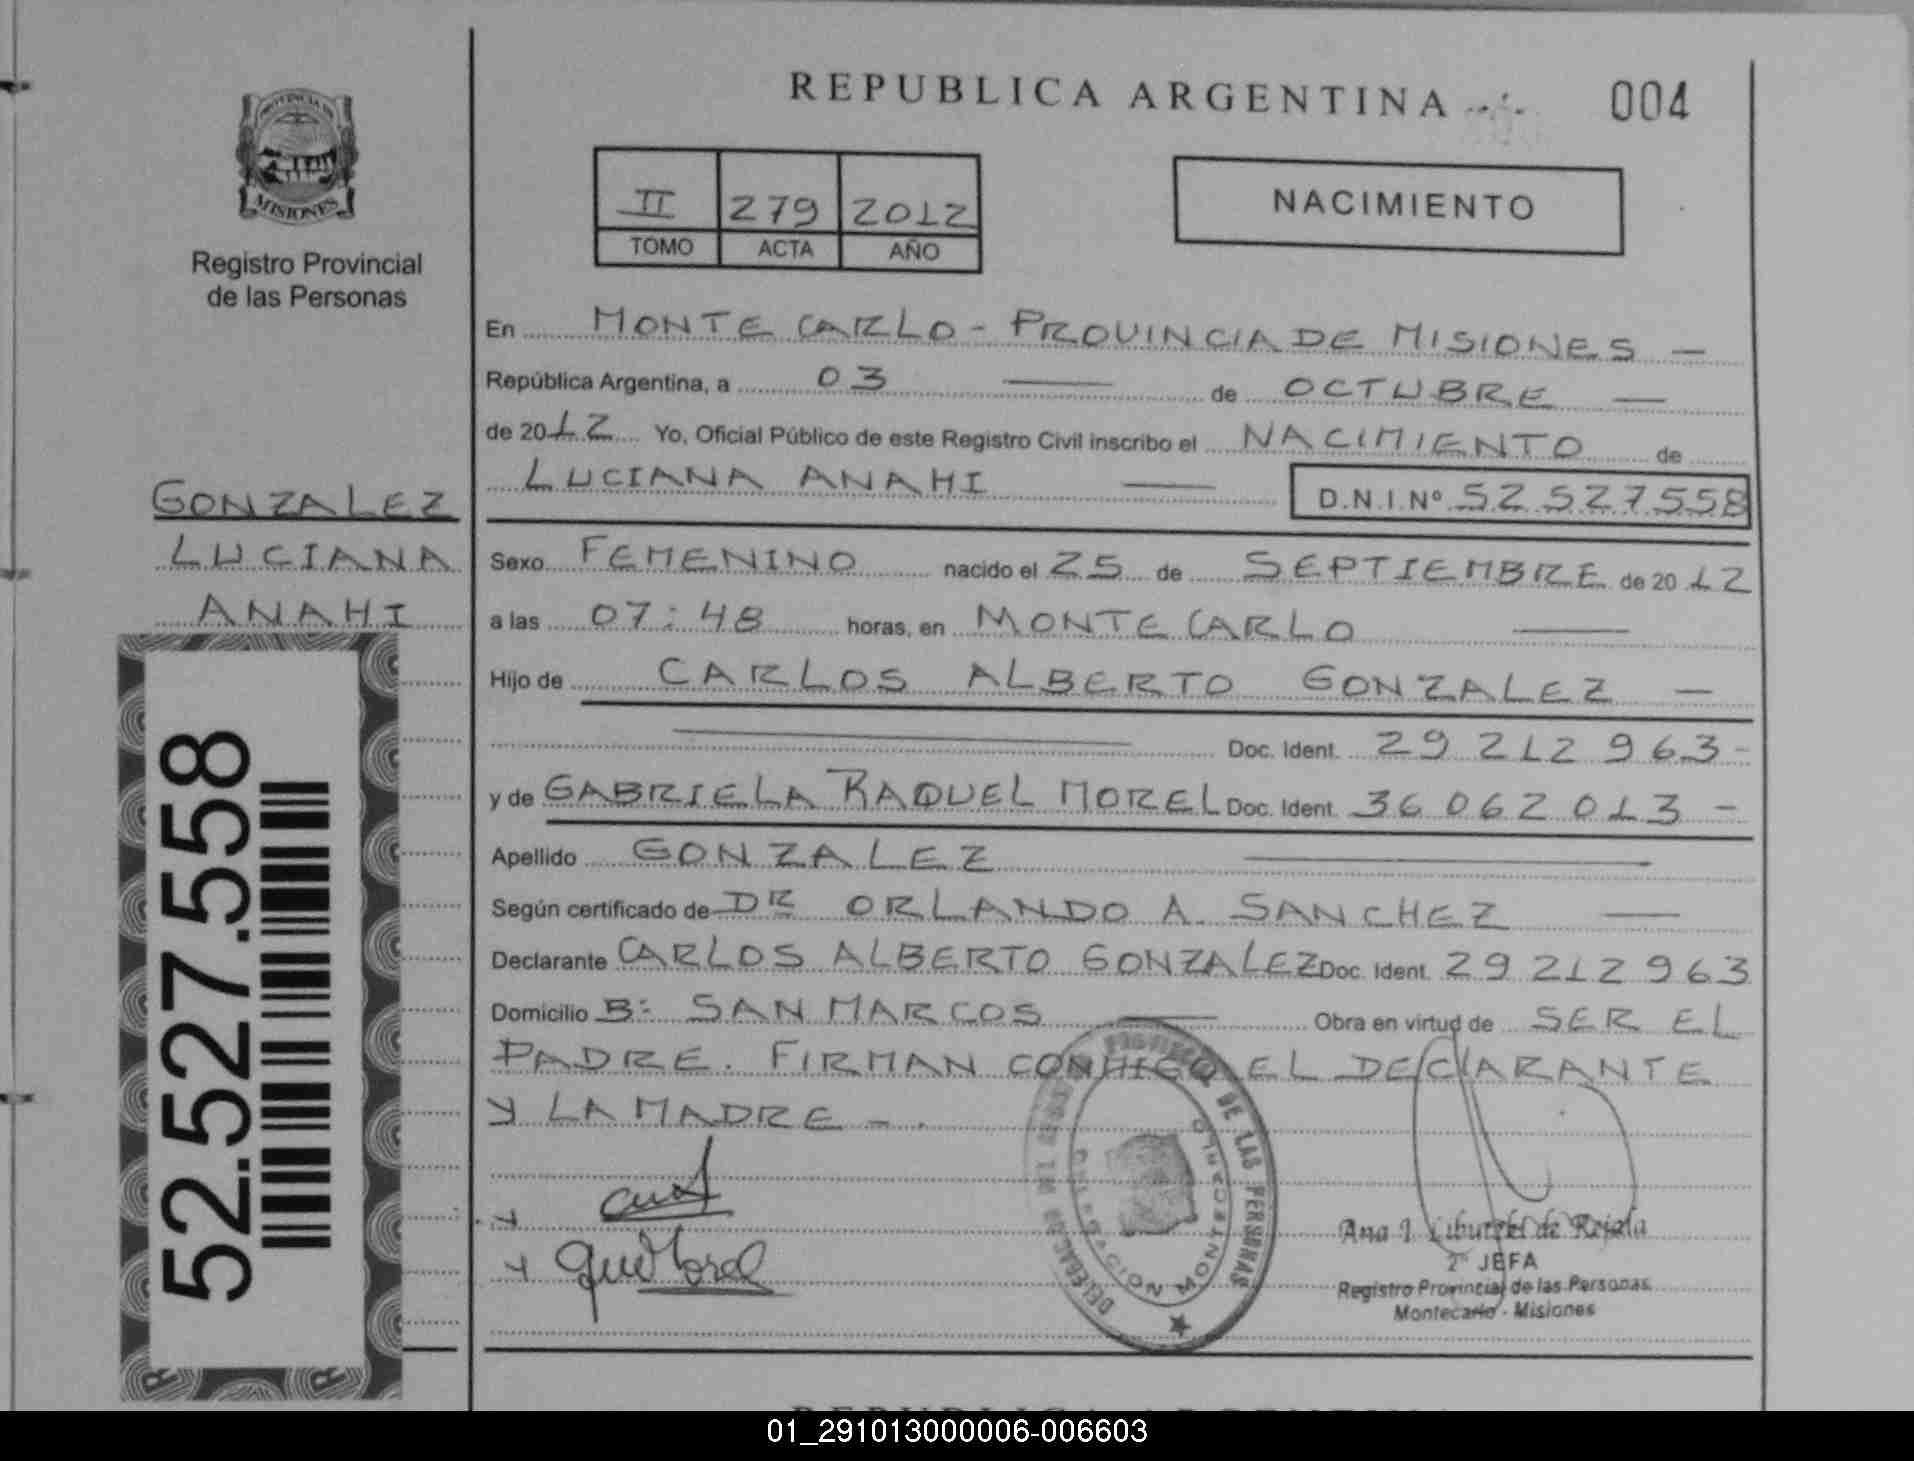 REPUBLICA ARGENTINA
004
PROVINCIA DE
MISIONES
Registro Provincial
de las Personas
II 279 2012
TOMO ACTA AÑO
NACIMIENTO
En MONTE CARLO - PROVINCIA DE MISIONES —
República Argentina, a 03 — de OCTUBRE —
de 2012 Yo, Oficial Público de este Registro Civil inscribo el NACIMIENTO de
LUCIANA ANAHI — D.N.I.Nº 52 527558
GONZALEZ
LUCIANA
ANAHI
Sexo FEMENINO nacido el 25 de SEPTIEMBRE de 2012
a las 07:48 horas, en MONTE CARLO —
Hijo de CARLOS ALBERTO GONZALEZ —
Doc. Ident. 29 212 963-
y de GABRIELA RAQUEL MOREL Doc. Ident. 36 062 013 -
Apellido GONZALEZ —
Según certificado de DR ORLANDO A. SANCHEZ —
Declarante CARLOS ALBERTO GONZALEZ Doc. Ident. 29 212 963
Domicilio B: SAN MARCOS — Obra en virtud de SER EL
PADRE. FIRMAN CONMIGO EL DECLARANTE
Y LA MADRE -.
52.527.558
PROVINCIAL DE LAS PERSONAS
DELEGACION MONTECARLO
Ana I. de
2ª JEFA
Registro Provincial de las Personas
Montecarlo - Misiones
REPUBLICA ARGENTINA
01_291013000006-006603